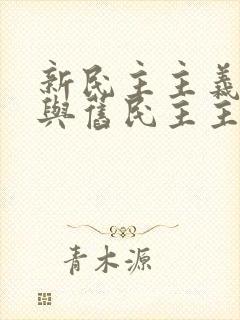 新民主主義
與舊民主主
青木源